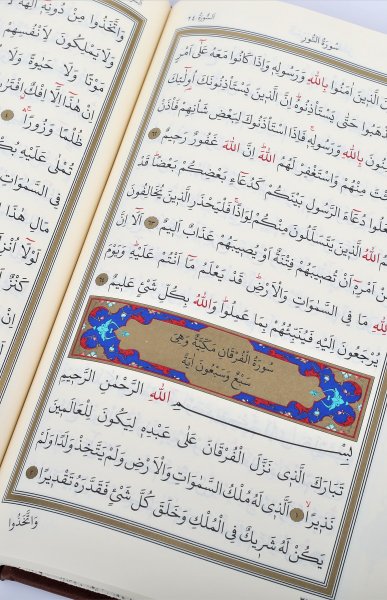 سُورَةُ النُّورِ
اَلسُّورَةُ ٢٤
الَّذ۪ينَ اٰمَنُوا بِاللّٰهِ وَرَسُولِه۪ وَاِذَا كَانُوا مَعَهُ عَلٰٓى اَمْرٍ
هَبُوا حَتّٰى يَسْتَأْذِنُوهُۜ اِنَّ الَّذ۪ينَ يَسْتَأْذِنُونَكَ اُو۬لٰٓئِكَ
بِاللّٰهِ وَرَسُولِه۪ۚ فَاِذَا اسْتَأْذَنُوكَ لِبَعْضِ شَأْنِهِمْ فَأْذَنْ
مِنْهُمْ وَاسْتَغْفِرْ لَهُمُ اللّٰهَۜ اِنَّ اللّٰهَ غَفُورٌ رَح۪يمٌ
دُعَٓاءَ الرَّسُولِ بَيْنَكُمْ كَدُعَٓاءِ بَعْضِكُمْ بَعْضًاۜ قَدْ
اللّٰهُ الَّذ۪ينَ يَتَسَلَّلُونَ مِنْكُمْ لِوَاذًاۚ فَلْيَحْذَرِ الَّذ۪ينَ يُخَالِفُونَ
اَمْرِه۪ٓ اَنْ تُص۪يبَهُمْ فِتْنَةٌ اَوْ يُص۪يبَهُمْ عَذَابٌ اَل۪يمٌ اَلَٓا اِنَّ
لِلّٰهِ مَا فِي السَّمٰوَاتِ وَالْاَرْضِۜ قَدْ يَعْلَمُ مَٓا اَنْتُمْ عَلَيْهِۜ وَيَوْمَ
يُرْجَعُونَ اِلَيْهِ فَيُنَبِّئُهُمْ بِمَا عَمِلُواۜ وَاللّٰهُ بِكُلِّ شَيْءٍ عَل۪يمٌ
سُورَةُ الْفُرْقَانِ مَكِّيَّةٌ وَهِيَ
سَبْعٌ وَسَبْعُونَ اٰيَةً
بِسْمِ اللّٰهِ الرَّحْمٰنِ الرَّح۪يمِ
تَبَارَكَ الَّذ۪ي نَزَّلَ الْفُرْقَانَ عَلٰى عَبْدِه۪ لِيَكُونَ لِلْعَالَم۪ينَ
نَذ۪يرًاۙ ١ اَلَّذ۪ي لَهُ مُلْكُ السَّمٰوَاتِ وَالْاَرْضِ وَلَمْ يَتَّخِذْ وَلَدًا وَلَمْ
يَكُنْ لَهُ شَر۪يكٌ فِي الْمُلْكِ وَخَلَقَ كُلَّ شَيْءٍ فَقَدَّرَهُ تَقْد۪يرًا ٢
وَاتَّخَذُوا
وَاتَّخَذُوا مِنْ دُونِه۪ٓ اٰلِهَةً
وَلَا يَمْلِكُونَ لِاَنْفُسِهِمْ
مَوْتًا وَلَا حَيٰوةً وَلَا
اِنْ هٰذَٓا اِلَّٓا اِفْكٌ
ظُلْمًا وَزُورًاۚ ٤
تُمْلٰى عَلَيْهِ
فِي السَّمٰوَاتِ
مَالِ هٰذَا
لَوْلَٓا
كَنْزٌ